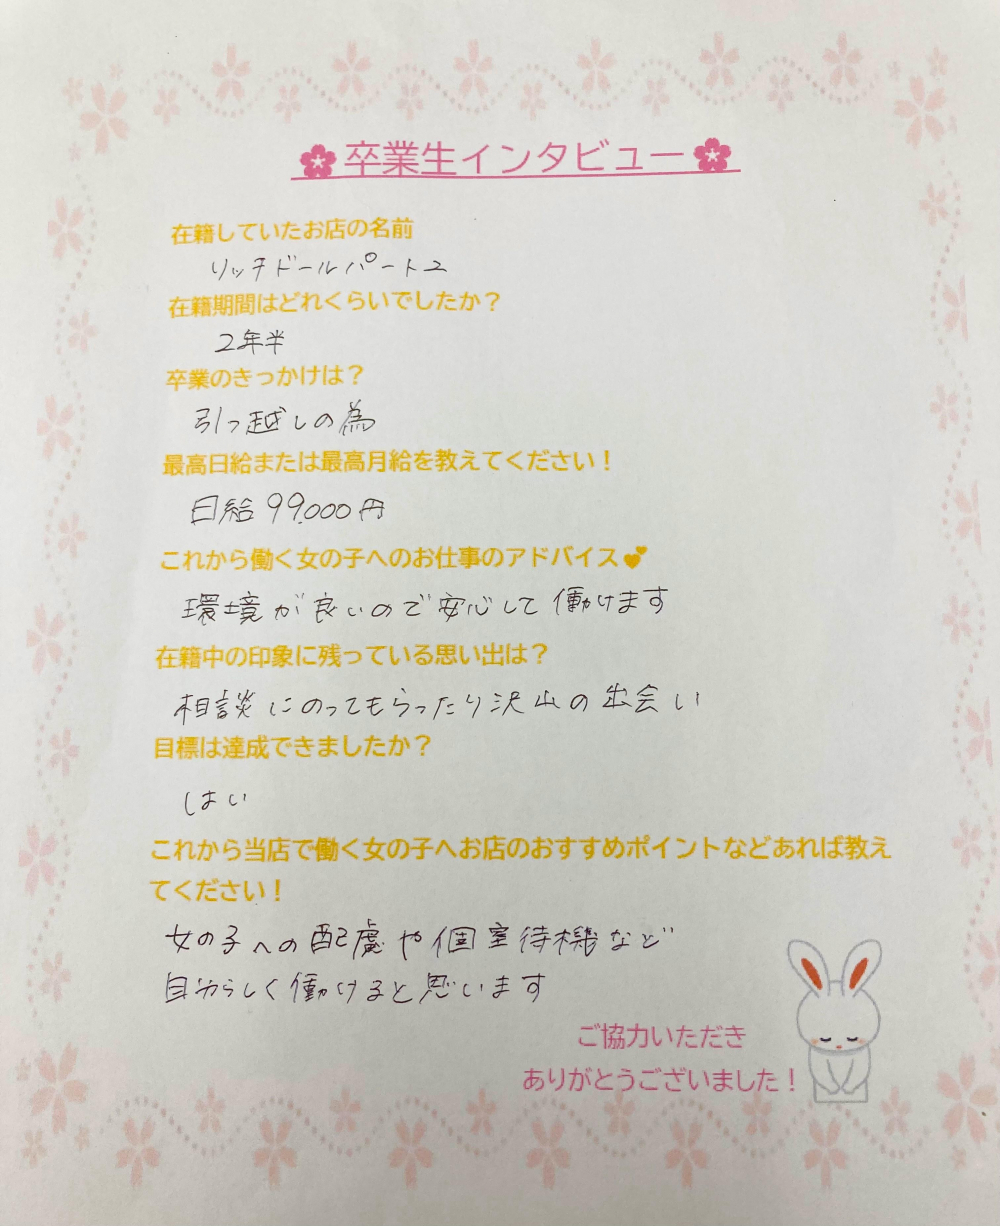 卒業生インタビュー
在籍していたお店の名前
リッチドールパート2
在籍期間はどれくらいでしたか？
2年半
卒業のきっかけは？
引っ越しの為
最高日給または最高月給を教えてください！
日給99,000円
これから働く女の子へのお仕事のアドバイス💕
環境が良いので安心して働けます
在籍中の印象に残っている思い出は？
相談にのってもらったり沢山の出会い
目標は達成できましたか？
はい
これから当店で働く女の子へお店のおすすめポイントなどあれば教え
てください！
女の子への配慮や個室待機など
自分らしく働けると思います
ご協力いただき
ありがとうございました！